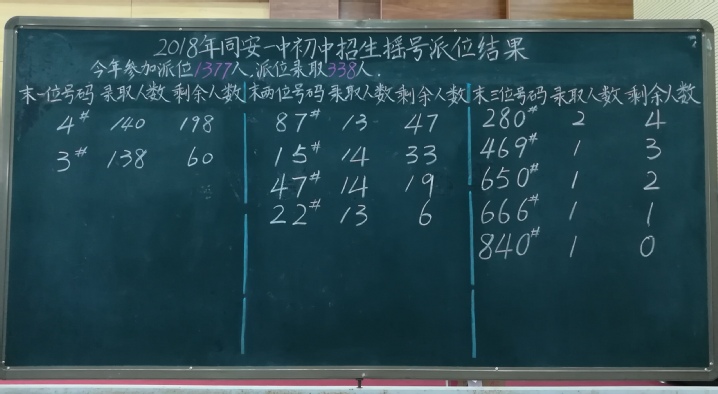 2018年同安一中初中招生摇号派位结果
今年参加派位1377人,派位录取338人.
末一位号码 录取人数 剩余人数 末两位号码 录取人数 剩余人数 末三位号码 录取人数 剩余人数
4# 140 198 87# 13 47 280# 2 4
3# 138 60 15# 14 33 469# 1 3
47# 14 19 650# 1 2
22# 13 6 666# 1 1
840# 1 0